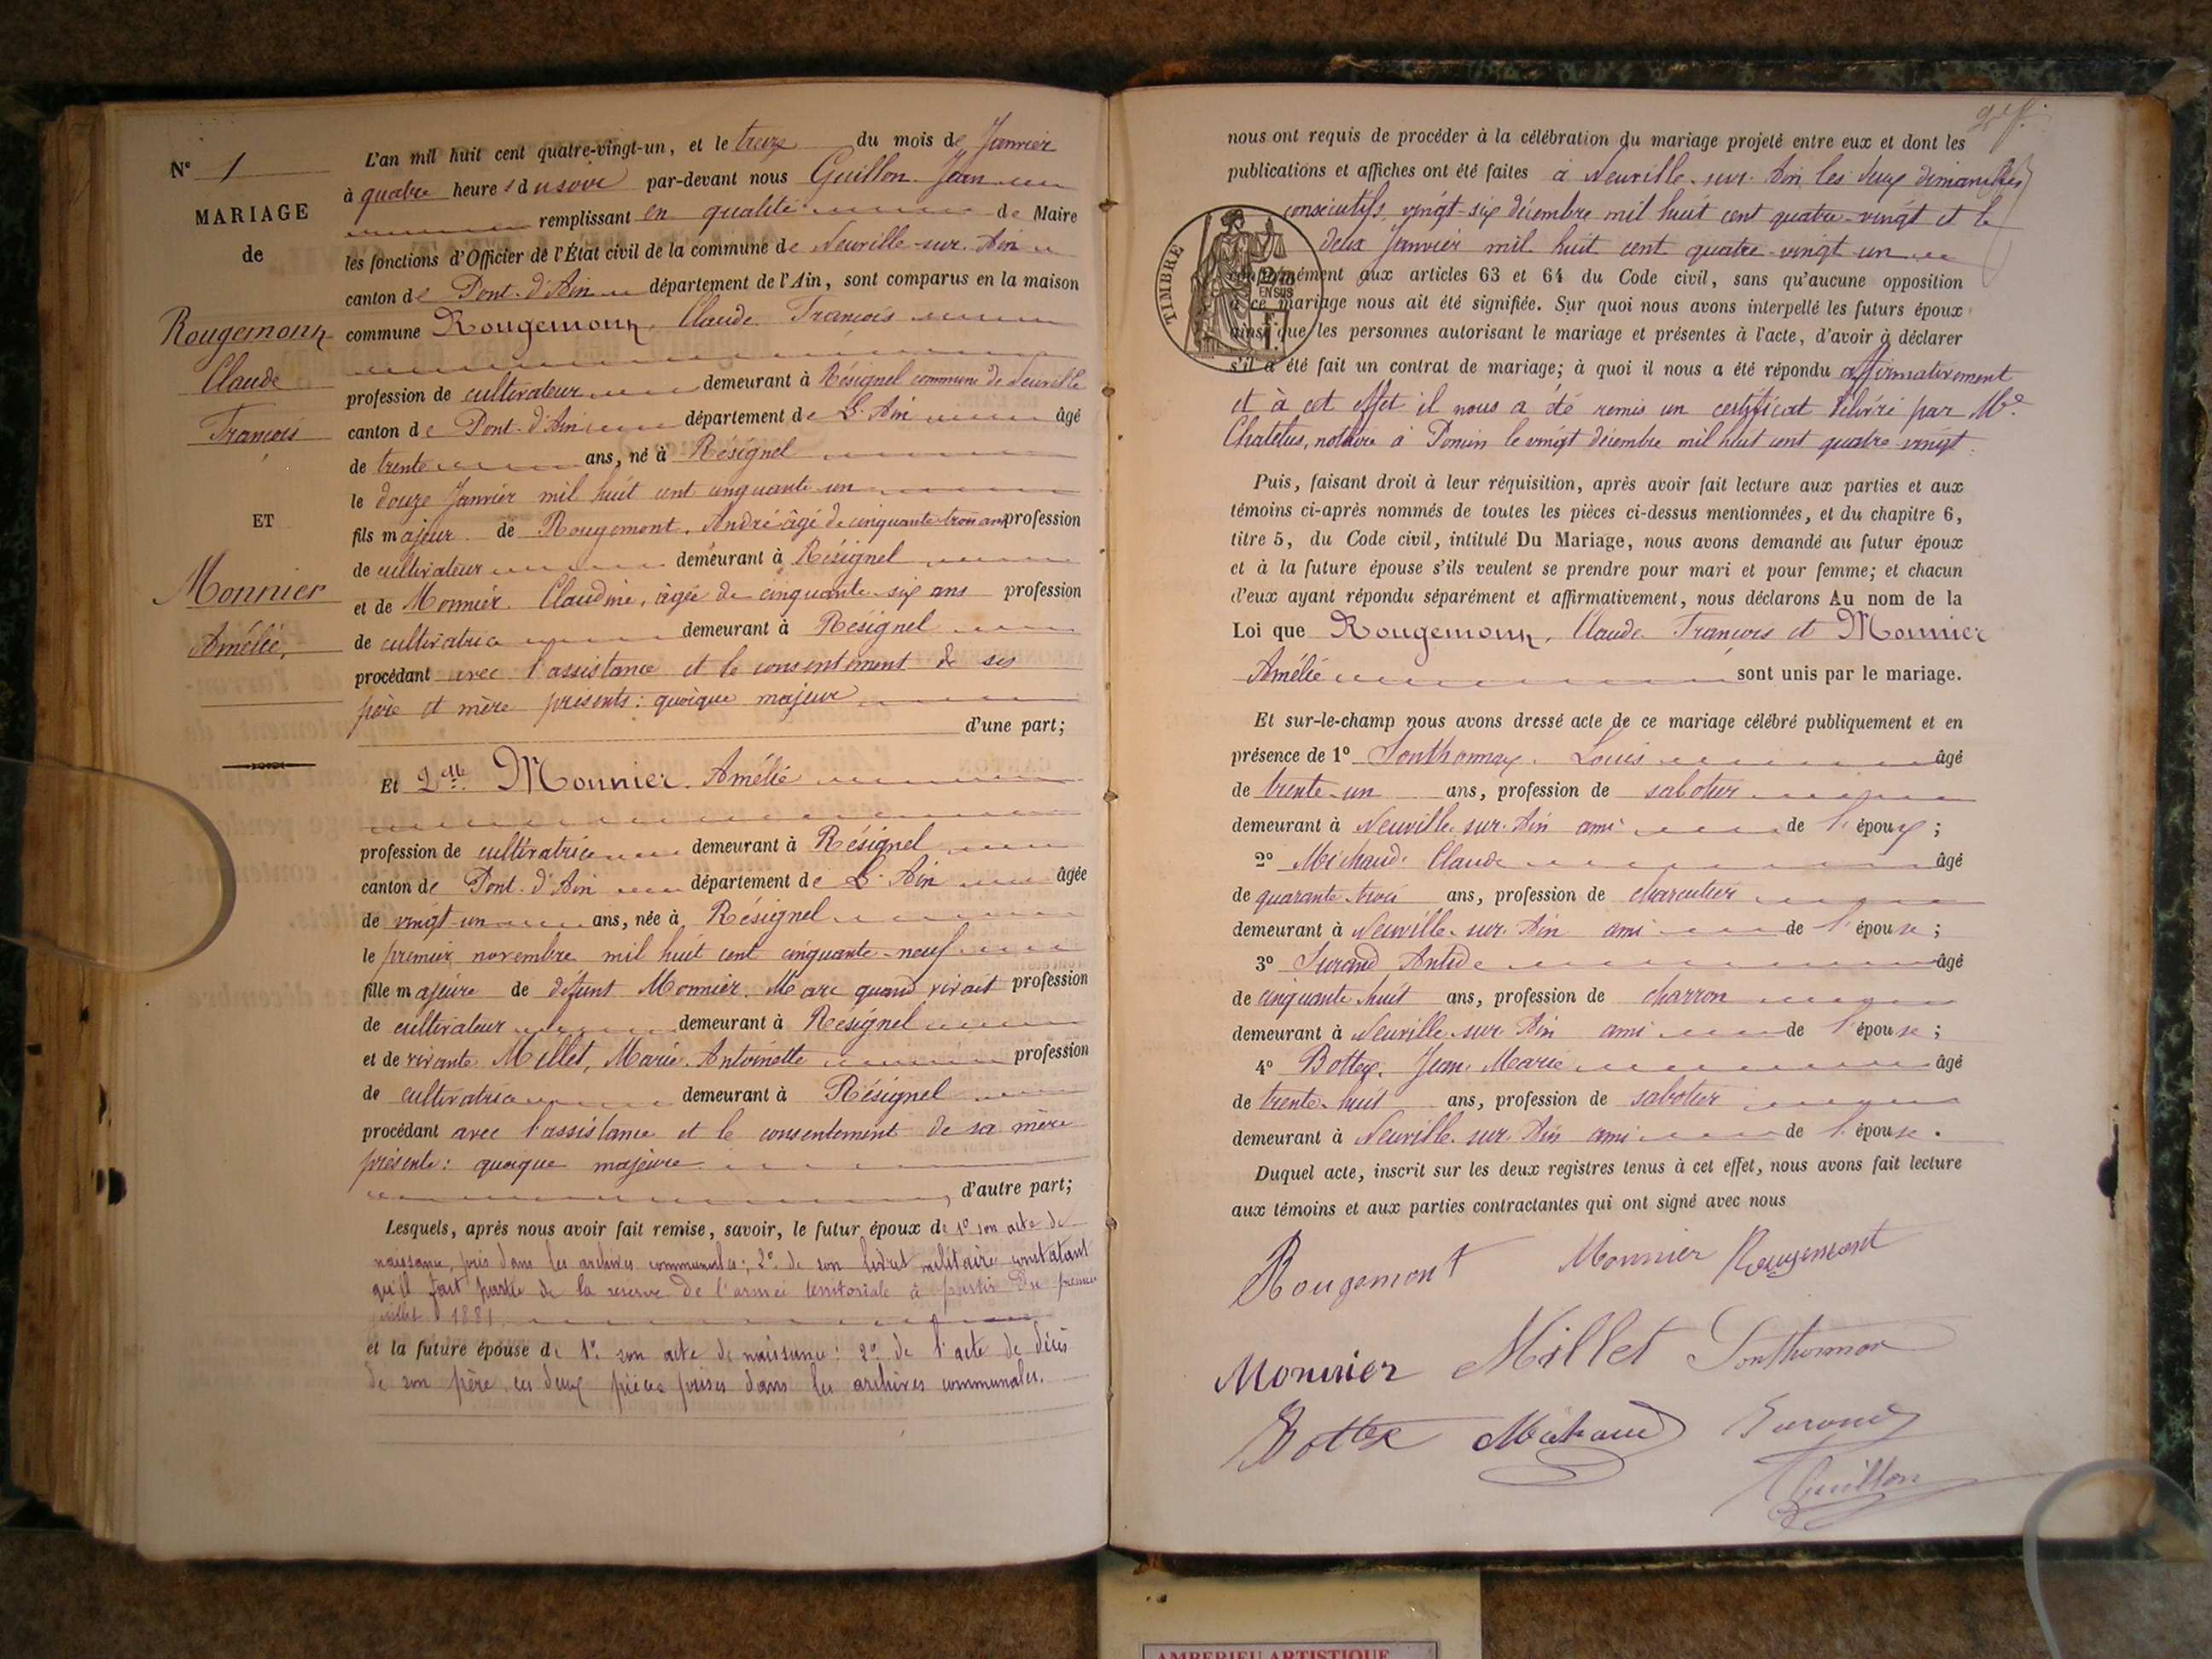 N° 1
MARIAGE
de
Rougemont
Claude
François
ET
Monnier
Amélie,
L'an mil huit cent quatre-vingt-un, et le treize du mois de Janvier
à quatre heures du soir par-devant nous Guillon Jean
remplissant en qualité de Maire
les fonctions d'Officier de l'État civil de la commune de Neuville-sur-Ain
canton de Pont-d'Ain département de l'Ain, sont comparus en la maison
commune Rougemont, Claude François
profession de cultivateur demeurant à Résignel commune de Neuville
canton de Pont-d'Ain département de L'Ain âgé
de trente ans, né à Résignel
le douze Janvier mil huit cent cinquante-un
fils majeur de Rougemont, André âgé de cinquante-trois ans profession
de cultivateur demeurant à Résignel
et de Monnier Claudine, âgée de cinquante-six ans profession
de cultivatrice demeurant à Résignel
procédant avec l'assistance et le consentement de ses
père et mère présents: quoique majeur
d'une part;
Et Delle Monnier Amélie
profession de cultivatrice demeurant à Résignel
canton de Pont-d'Ain département de L'Ain âgée
de vingt-un ans, née à Résignel
le premier novembre mil huit cent cinquante-neuf
fille majeure de défunt Monnier Marc quand vivait profession
de cultivateur demeurant à Résignel
et de vivante Millet, Marie-Antoinette profession
de cultivatrice demeurant à Résignel
procédant avec l'assistance et le consentement de sa mère
présente: quoique majeure
, d'autre part;
Lesquels, après nous avoir fait remise, savoir, le futur époux de 1° son acte de
naissance, pris dans les archives communales; 2° de son livret militaire constatant
qu'il fait partie de la réserve de l'armée territoriale à partir du premier
juillet 1881
et la future épouse de 1° son acte de naissance; 2° de l'acte de décès
de son père, ces deux pièces prises dans les archives communales.
nous ont requis de procéder à la célébration du mariage projeté entre eux et dont les
publications et affiches ont été faites à Neuville-sur-Ain les deux dimanches
consécutifs, vingt-six décembre mil huit cent quatre-vingt et le
deux Janvier mil huit cent quatre-vingt-un
TIMBRE
2/10
EN SUS
conformément aux articles 63 et 64 du Code civil, sans qu'aucune opposition
à ce mariage nous ait été signifiée. Sur quoi nous avons interpellé les futurs époux
ainsi que les personnes autorisant le mariage et présentes à l'acte, d'avoir à déclarer
s'il a été fait un contrat de mariage; à quoi il nous a été répondu affirmativement
et à cet effet il nous a été remis un certificat délivré par Me
Chatelus, notaire à Poncin le vingt décembre mil huit cent quatre-vingt.
Puis, faisant droit à leur réquisition, après avoir fait lecture aux parties et aux
témoins ci-après nommés de toutes les pièces ci-dessus mentionnées, et du chapitre 6,
titre 5, du Code civil, intitulé Du Mariage, nous avons demandé au futur époux
et à la future épouse s'ils veulent se prendre pour mari et pour femme; et chacun
d'eux ayant répondu séparément et affirmativement, nous déclarons Au nom de la
Loi que Rougemont, Claude François et Monnier
Amélie sont unis par le mariage.
Et sur-le-champ nous avons dressé acte de ce mariage célébré publiquement et en
présence de 1° Sonthonnax Louis âgé
de trente-un ans, profession de sabotier
demeurant à Neuville-sur-Ain ami de l'époux;
2° Michaud Claude âgé
de quarante-trois ans, profession de charcutier
demeurant à Neuville-sur-Ain ami de l'épouse;
3° Surand Antide âgé
de cinquante-huit ans, profession de charron
demeurant à Neuville-sur-Ain ami de l'épouse;
4° Bottex, Jean-Marie âgé
de trente-huit ans, profession de sabotier
demeurant à Neuville-sur-Ain ami de l'épouse.
Duquel acte, inscrit sur les deux registres tenus à cet effet, nous avons fait lecture
aux témoins et aux parties contractantes qui ont signé avec nous
Rougemont Monnier Rougemont
Monnier Millet Sonthonnax
Bottex Michaud Surand
Guillon
AMBERIEU ARTISTIQUE